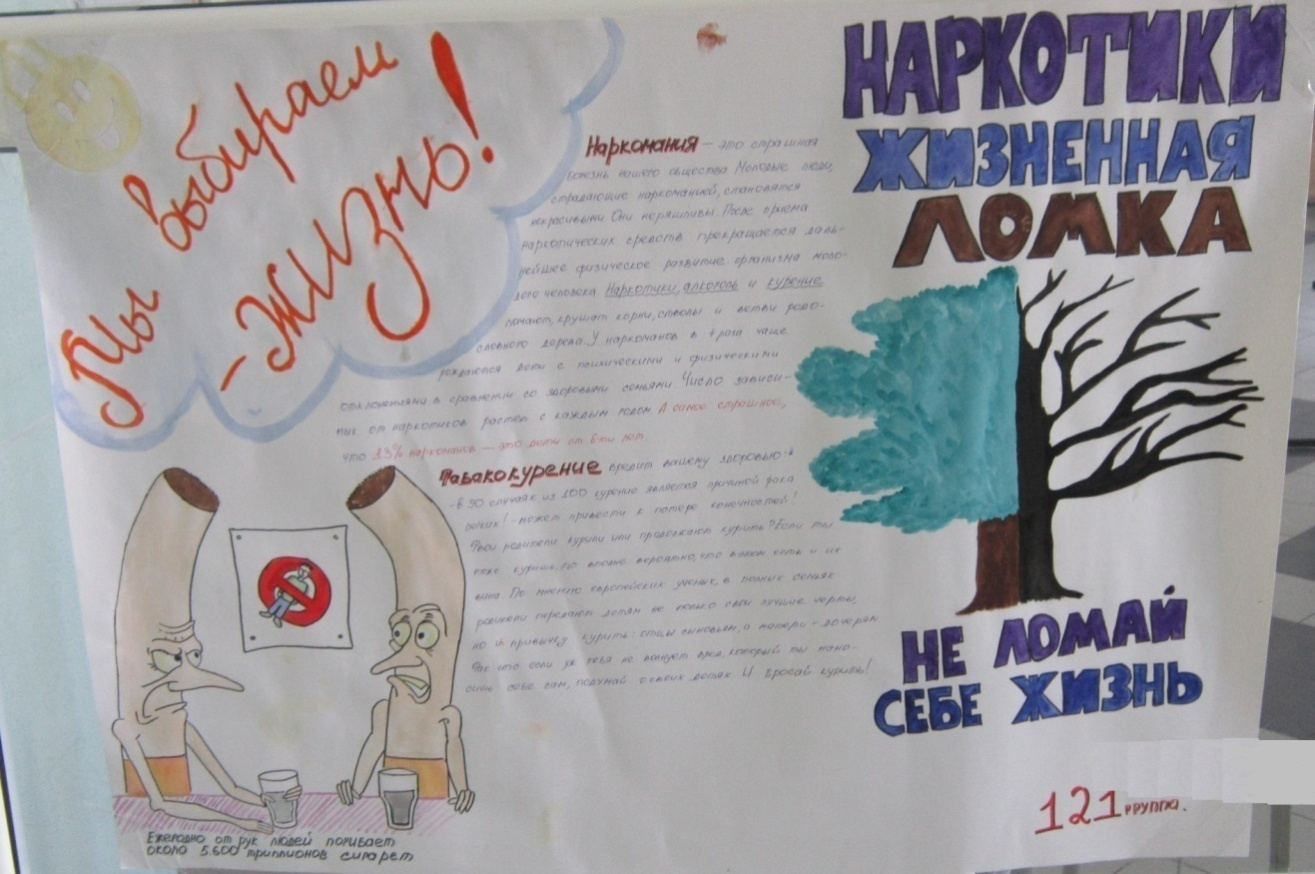 Мы выбираем
- жизнь!
Наркомания – это страшная
болезнь нашего общества. Молодые люди,
страдающие наркоманией, становятся
некрасивыми. Они неряшливы. После приема
наркотических средств прекращается даль-
нейшее физическое развитие организма моло-
дого человека. Наркотики, алкоголь и курение
ломают, крушат корни, стволы и ветви родо-
словного дерева. У наркоманов в 4 раза чаще
рождаются дети с психическими и физическими
отклонениями в сравнении со здоровыми семьями. Число зависи-
мых от наркотиков растет с каждым годом. А самое страшное,
что 13% наркоманов – это дети от 6ти лет.
Табакокурение вредит вашему здоровью:
- в 90 случаях из 100 курение является причиной рака
легких! - может привести к потере конечностей!
Твои родители курили или продолжают курить? Если ты
тоже куришь, то вполне вероятно, что в этом есть и их
вина. По мнению европейских ученых, в полных семьях
родители передают детям не только свои лучшие черты,
но и привычку курить: отцы сыновьям, а матери – дочерям.
Так что если уж тебя не волнует вред, который ты нано-
сишь себе сам, подумай о своих детях. И бросай курить!
НАРКОТИКИ
ЖИЗНЕННАЯ
ЛОМКА
НЕ ЛОМАЙ
СЕБЕ ЖИЗНЬ
Ежегодно от рук людей погибает
около 5.600 триллионов сигарет
121 группа.